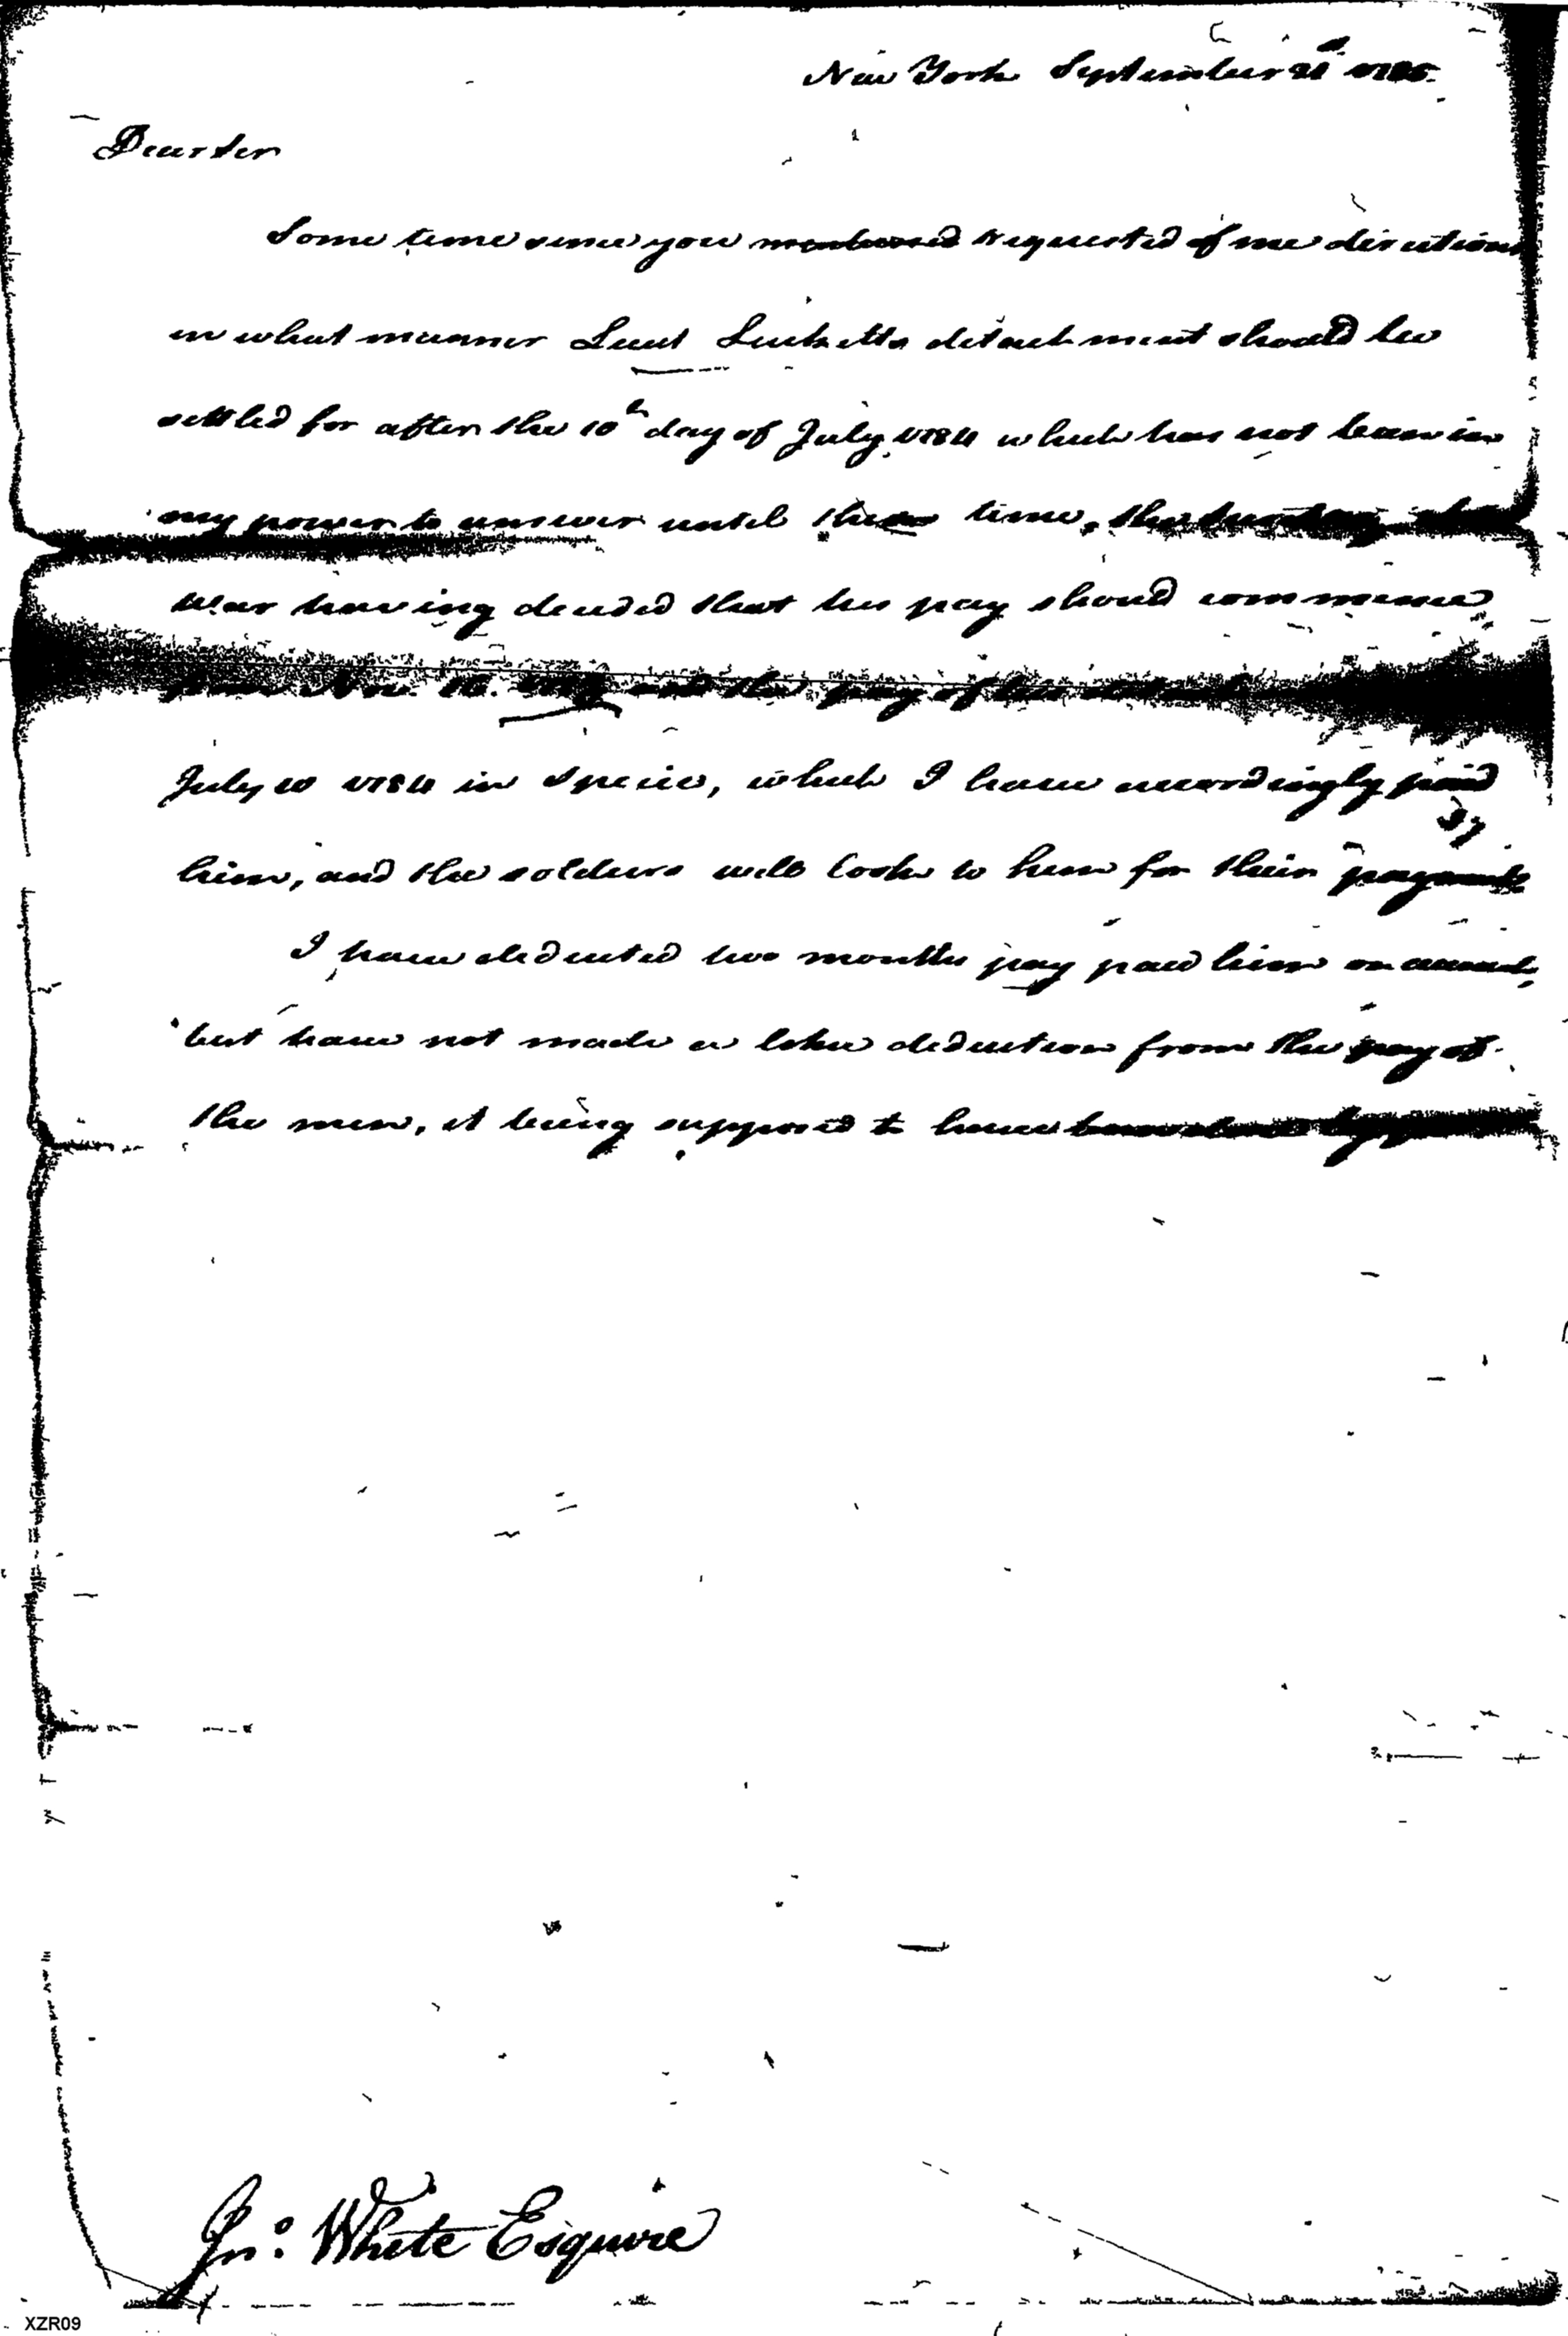 New York September 21 1785.
Dear Sir
Some time since you mentioned requested of me directions
in what manner Lieut Lucketts detachment should be
settled for after the 10th day of July 1784 which has not been in
my power to answer until this time, the
War having decided that his pay should commence
from Nov. 16. and the pay of his
July 10 1784 in Specie, which I have accordingly paid
him, and the soldiers will look to him for their pay
I have deducted two months pay paid him on account,
but have not made a like deduction from the pay of
the men, it being supposed to have been
Jno: White Esquire
XZR09